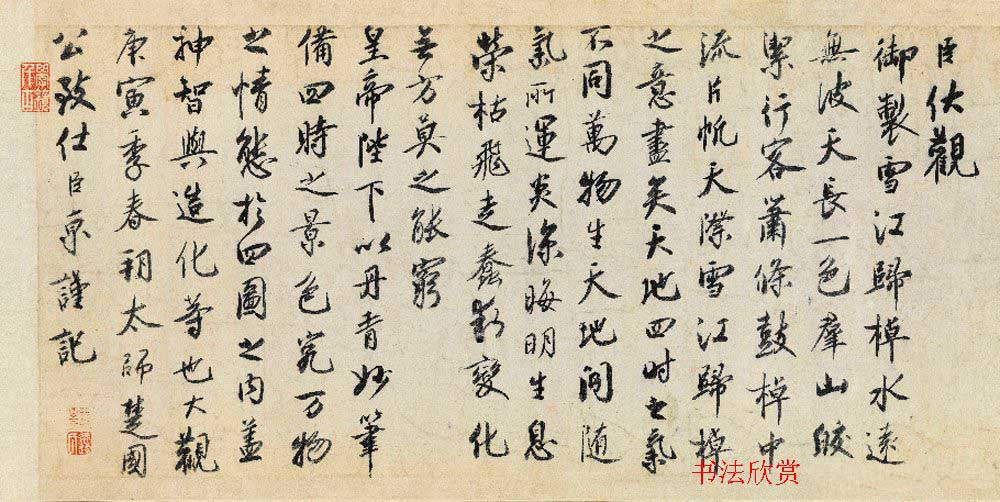 臣伏觀
御製雪江歸棹水遠
無波天長一色羣山皎
潔行客蕭條鼓棹中
流片帆天際雪江歸棹
之意盡矣天地四时之氣
不同萬物生天地間随
氣所運炎涼晦明生息
榮枯飛走蠢動變化
無方莫之能窮
皇帝陛下以丹青妙筆
備四時之景色究万物
之情態於四圖之内盖
神智與造化等也大觀
庚寅季春朔太師楚國
公致仕臣京謹記
书法欣赏